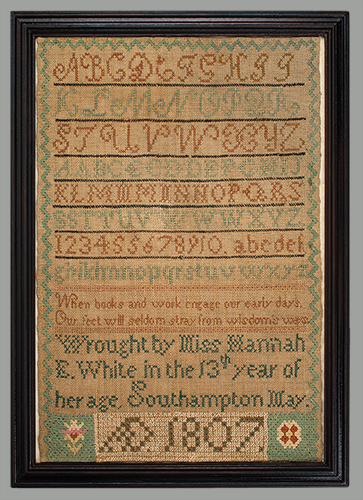 ABCDEFGHIJ
KLMNOPQR
STUVWXYZ
KLMMNNOPQRS
123455678910. abcdef
ghiklmnopqrstuvwxyz
When books and work engage our early days,
Our feet will seldom stray from wisdom's ways
Wrought by Miss Hannah
E. White in the 13th year of
her age Southampton May.
AD 1807